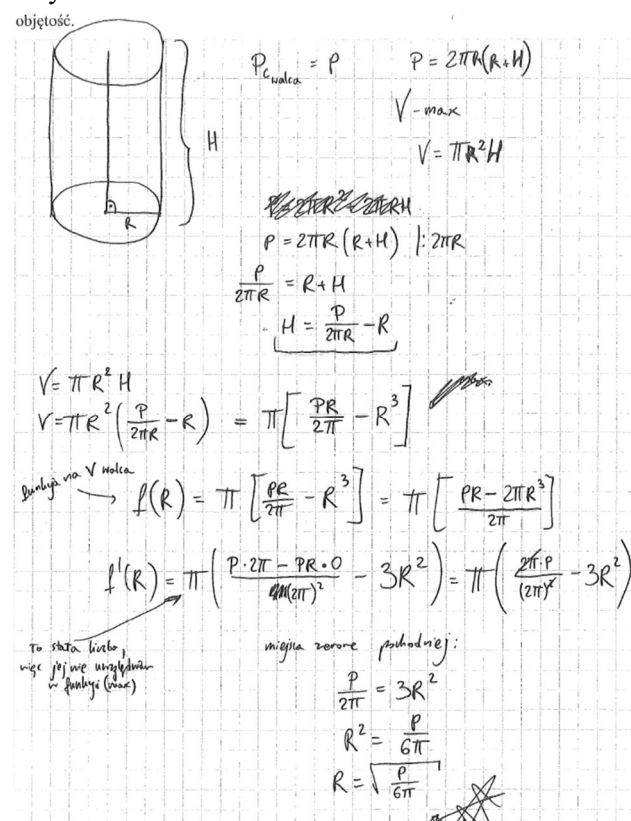 objętość.
P_c walca = P    P = 2πR(R+H)
V - max
H
V = πR²H
R
P = 2πR(R+H) |: 2πR
P/2πR = R+H
H = P/2πR - R
V = πR²H
V = πR²(P/2πR - R) = π[PR/2π - R³]
funkcja na V walca
f(R) = π[PR/2π - R³] = π[(PR - 2πR³)/2π]
f'(R) = π((P·2π - PR·0)/(2π)² - 3R²) = π(2π·P/(2π)² - 3R²)
To stała liczba,
więc jej nie uwzględniam
w funkcji (max)
miejsca zerowe pochodniej:
P/2π = 3R²
R² = P/6π
R = √(P/6π)